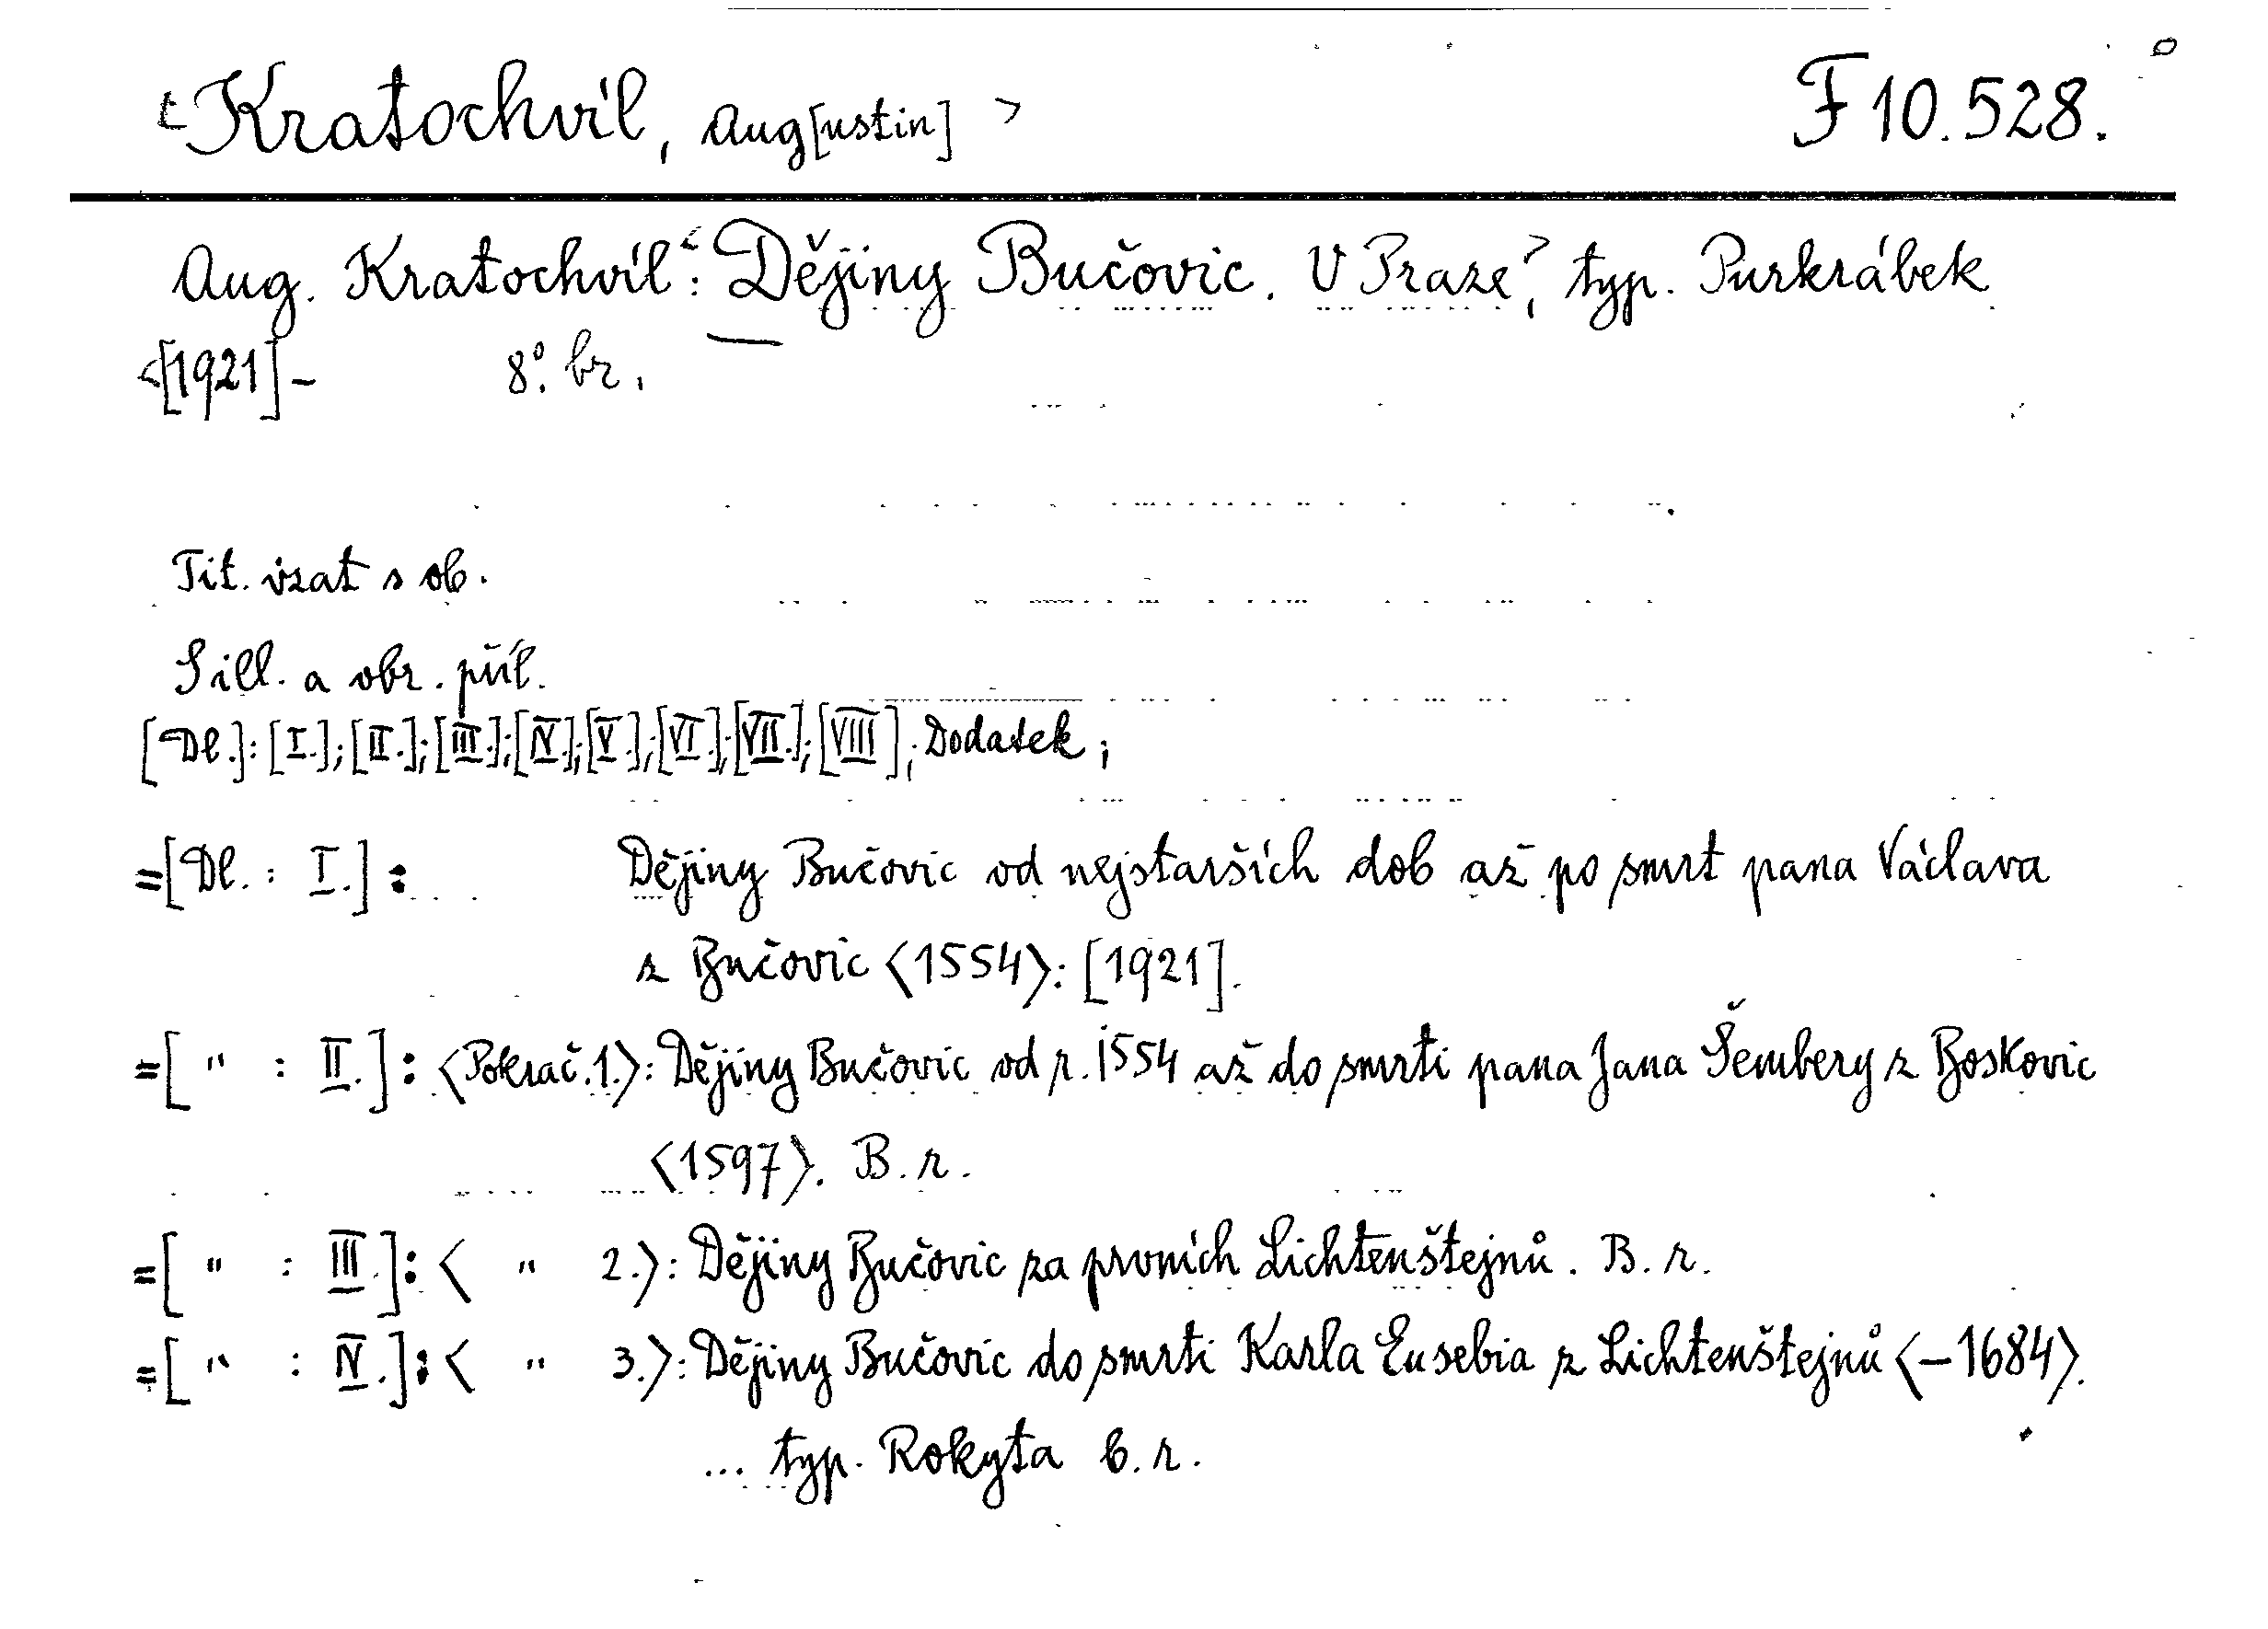 <Kratochvíl, Aug[ustin]> F 10.528.
Aug. Kratochvíl<: Dějiny Bučovic. V Praze>, typ. Purkrábek
<[1921] – 8°. br.
Tit. vzat s ob.
S ill. a obr. příl.
[Dl.]: [I.]; [II.]; [III.]; [IV.]; [V.]; [VI.]; [VII.]; [VIII]; Dodatek;
=[Dl. : I.]: Dějiny Bučovic od nejstarších dob až po smrt pana Václava
z Bučovic <1554>: [1921].
=[ " : II.]: <Pokrač. 1.>: Dějiny Bučovic od r. 1554 až do smrti pana Jana Šembery z Boskovic
<1597>. B. r.
=[ " : III.]: < " 2.>: Dějiny Bučovic za prvních Lichtenštejnů. B. r.
=[ " : IV.]: < " 3.>: Dějiny Bučovic do smrti Karla Eusebia z Lichtenštejnů <–1684>.
... typ. Rokyta b. r.